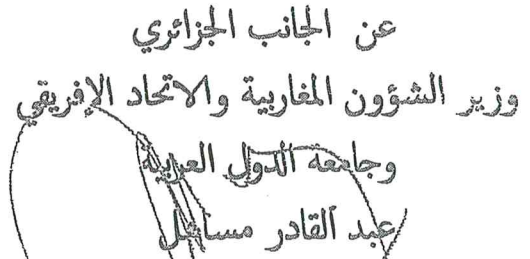 عن الجانب الجزائري
وزير الشؤون المغاربية والاتحاد الإفريقي
وجامعة الدول العربية
عبد القادر مساهل